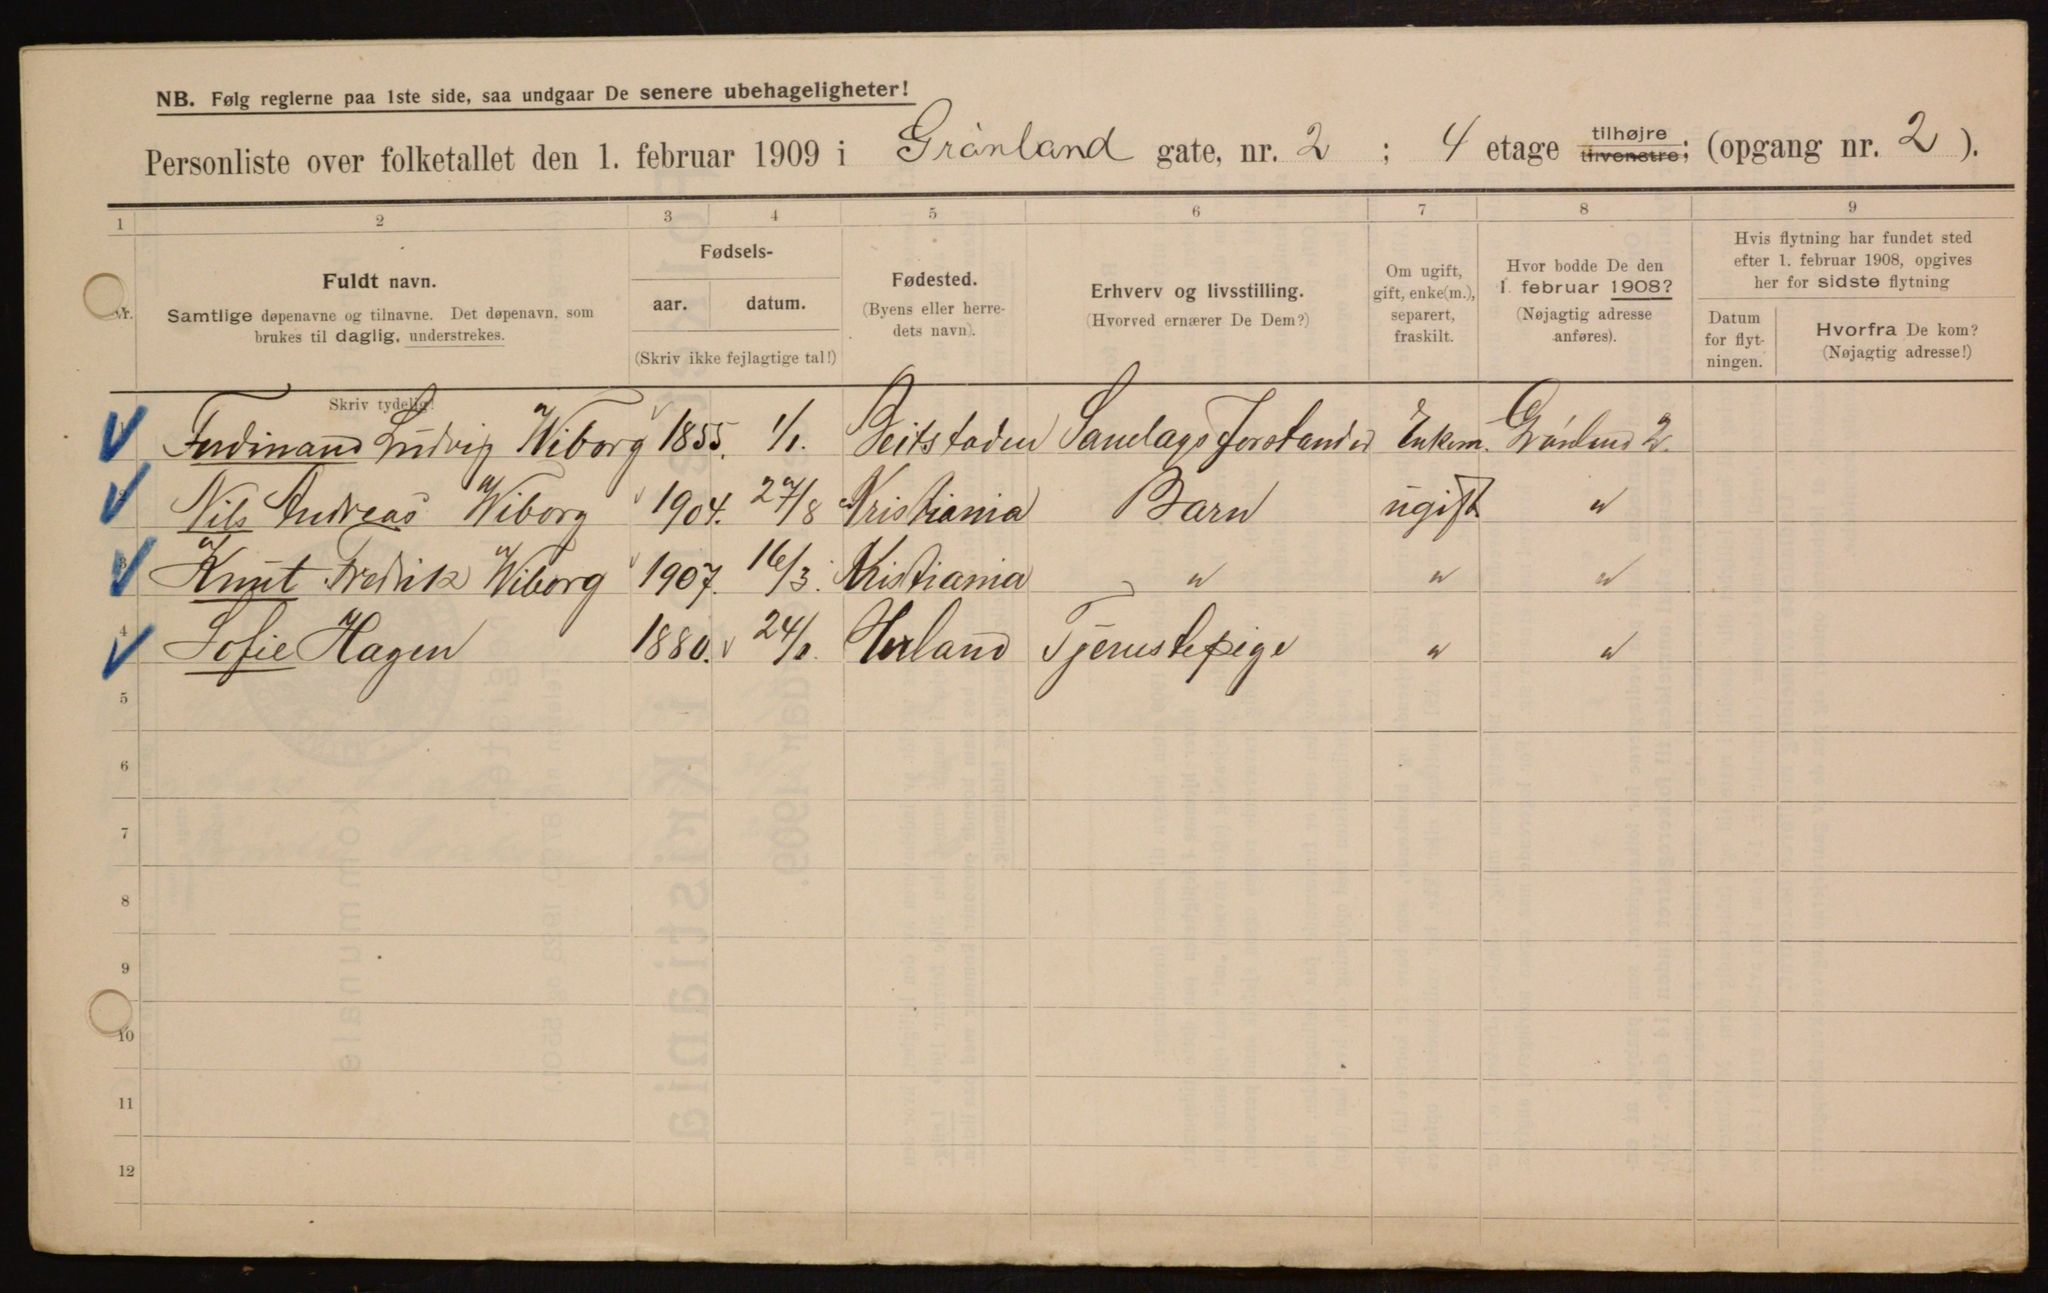 NB. Følg reglerne paa 1ste side, saa undgaar De senere ubehageligheter!
Personliste over folketallet den 1. februar 1909 i Grønland gate, nr. 2 ; 4 etage tilhøjre tilvenstre; (opgang nr. 2 ).
1 2 3 4 5 6 7 8 9
Nr.
Fuldt navn.
Samtlige døpenavne og tilnavne. Det døpenavn, som
brukes til daglig, understrekes.
Skriv tydelig!
Fødsels-
aar. datum.
(Skriv ikke fejlagtige tal!)
Fødested.
(Byens eller herre-
dets navn).
Erhverv og livsstilling.
(Hvorved ernærer De Dem?)
Om ugift,
gift, enke(m.),
separert,
fraskilt.
Hvor bodde De den
1. februar 1908?
(Nøjagtig adresse
anføres).
Hvis flytning har fundet sted
efter 1. februar 1908, opgives
her for sidste flytning
Datum
for flyt-
ningen.
Hvorfra De kom?
(Nøjagtig adresse!)
Ferdinand Ludvig Wiborg 1855. 1/1. Beitstaden Forstander Enkem. Grønland 2.
Nils Andreas Wiborg 1904. 27/8 Kristiania Barn ugift "
3 Knut Fredrik Wiborg 1907. 16/3. Kristiania " " "
4 Sofie Hagen 1880. Tjenestepige " "
5
6
7
8
9
10
11
12